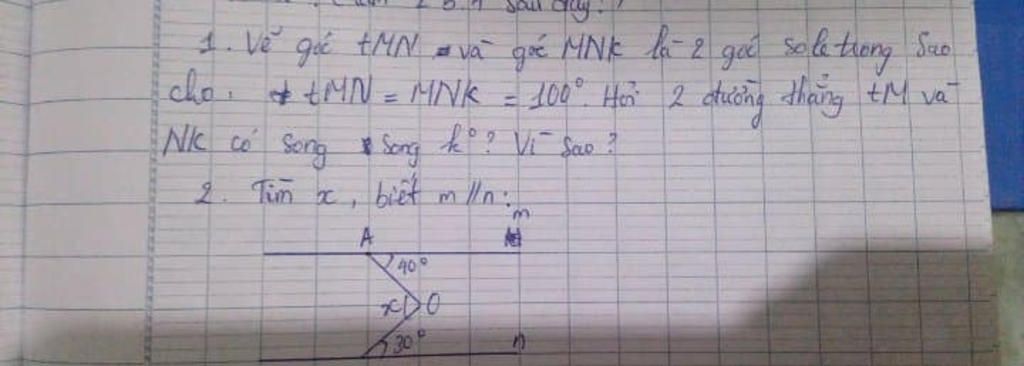 sau đây:
1. Vẽ góc tMN và góc MNK là 2 góc so le trong sao
cho: tMN = MNK = 100°. Hỏi 2 đường thẳng tM và
NK có song song k°? Vì sao?
2. Tìm x, biết m // n:
m
A
40°
x O
30° n